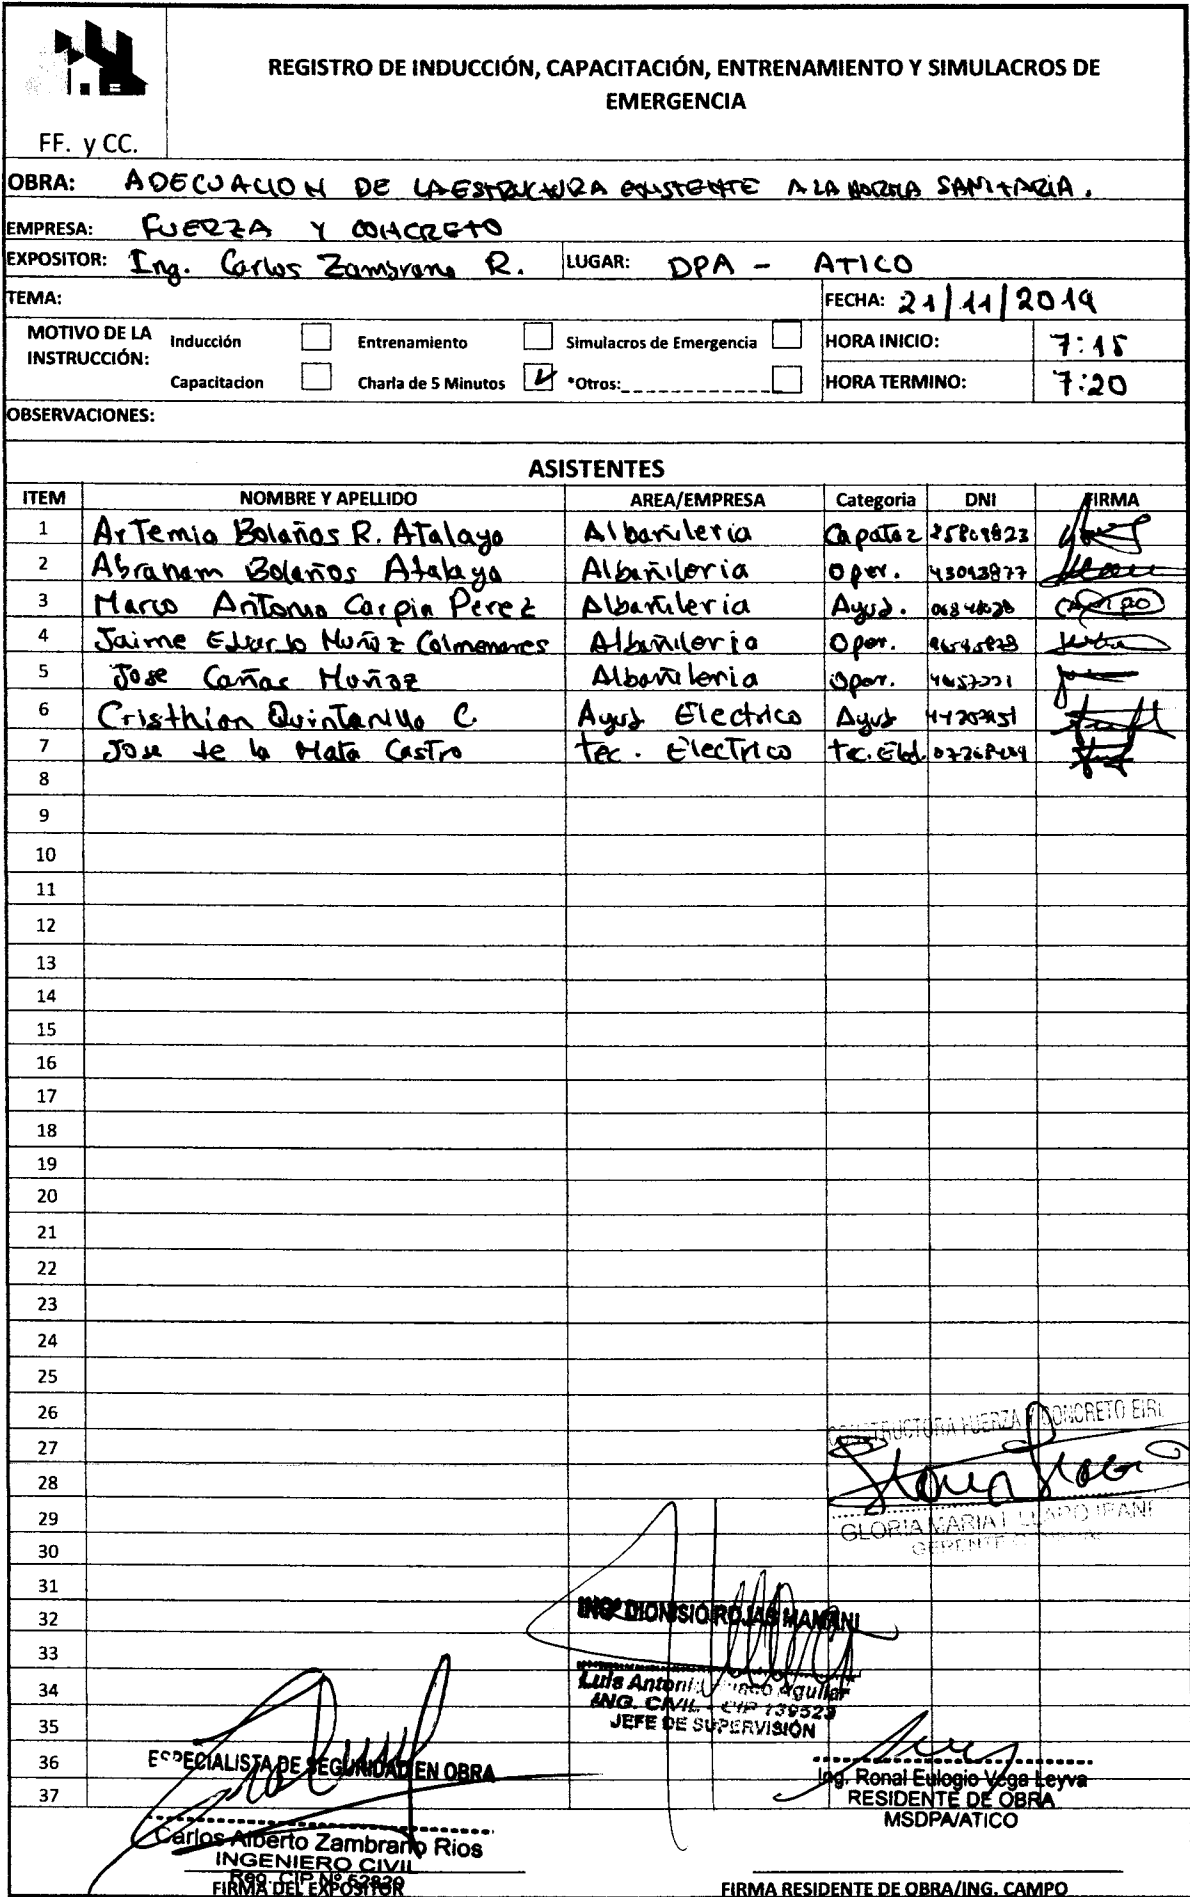 REGISTRO DE INDUCCIÓN, CAPACITACIÓN, ENTRENAMIENTO Y SIMULACROS DE
EMERGENCIA
FF. y CC.
OBRA: ADECUACION DE LA ESTRUCTURA EXISTENTE A LA NORMA SANITARIA.
EMPRESA: FUERZA Y CONCRETO
EXPOSITOR: Ing. Carlos Zambrano R. LUGAR: DPA - ATICO
TEMA: FECHA: 21/11/2019
MOTIVO DE LA INSTRUCCIÓN: Inducción Entrenamiento Simulacros de Emergencia HORA INICIO: 7:15
Capacitacion Charla de 5 Minutos *Otros: HORA TERMINO: 7:20
OBSERVACIONES:
ASISTENTES
ITEM NOMBRE Y APELLIDO AREA/EMPRESA Categoria DNI FIRMA
1 Artemio Bolaños R. Atalaya Albañileria Capataz
2 Abraham Bolaños Atalaya Albañileria Oper. 43093877
3 Marco Antonio Carpio Perez Albañileria Ayud.
4 Jaime Eduardo Muñoz Colmenares Albañileria Oper.
5 Jose Cañas Muñoz Albañileria Oper.
6 Cristhian Quintanilla C. Ayud Electrico Ayud
7 Jose de la Mata Castro tec. Electrico tec. Elect.
8
9
10
11
12
13
14
15
16
17
18
19
20
21
22
23
24
25
26
27
28
29
30
31
32
33
34
35
36
37
CONSTRUCTORA FUERZA Y CONCRETO EIRL
GLORIA MARIA
GERENTE
INGº DIONISIO ROJAS MAMANI
Luis Antonio Aguilar
ING. CIVIL - CIP 139523
JEFE DE SUPERVISIÓN
ESPECIALISTA DE SEGURIDAD EN OBRA
Carlos Alberto Zambrano Rios
INGENIERO CIVIL
Reg. CIP Nº 52820
FIRMA DEL EXPOSITOR
Ing. Ronal Eulogio Vega Leyva
RESIDENTE DE OBRA
MSDPA/ATICO
FIRMA RESIDENTE DE OBRA/ING. CAMPO